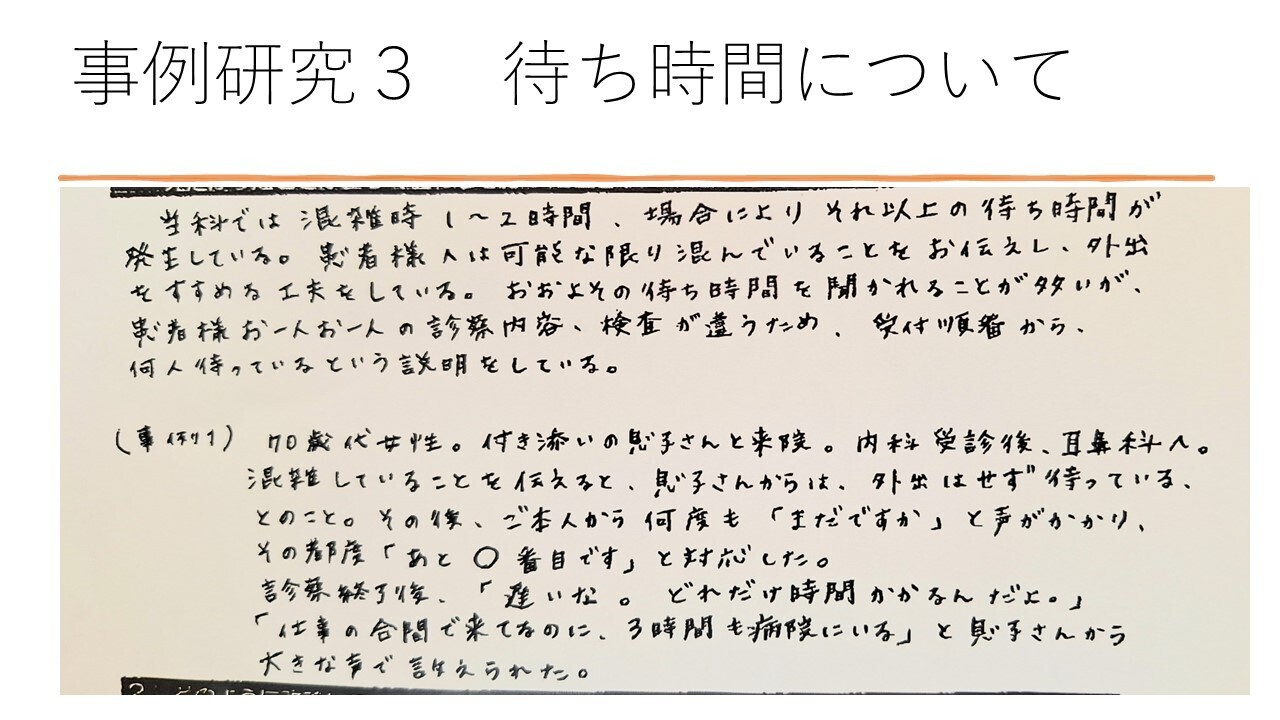 事例研究３　待ち時間について
当科では混雑時1～2時間、場合によりそれ以上の待ち時間が
発生している。患者様へは可能な限り混んでいることをお伝えし、外出
をすすめる工夫をしている。おおよその待ち時間を聞かれることが多いが、
患者様お一人お一人の診察内容、検査が違うため、受付順番から、
何人待っているという説明をしている。
(事例1) 70歳代女性。付き添いの息子さんと来院。内科受診後、耳鼻科へ。
混雑していることを伝えると、息子さんからは、外出はせず待っている、
とのこと。その後、ご本人から何度も「まだですか」と声がかかり、
その都度「あと〇番目です」と対応した。
診察終了後、「遅いな。どれだけ時間かかるんだよ。」
「仕事の合間で来てるのに、3時間も病院にいる」と息子さんから
大きな声で訴えられた。